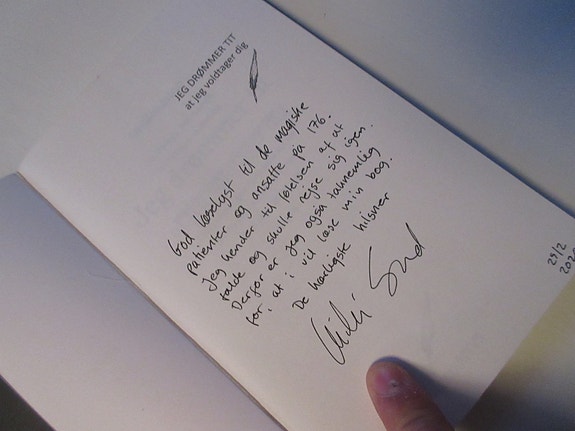 JEG DRØMMER TIT
at jeg voldtager dig
God læselyst til de magiske
patienter og ansatte på 176.
Jeg kender til følelsen af at
falde og skulle rejse sig igen.
Derfor er jeg også taknemlig
for, at i vil læse min bog.
De kærligste hilsner
29/2